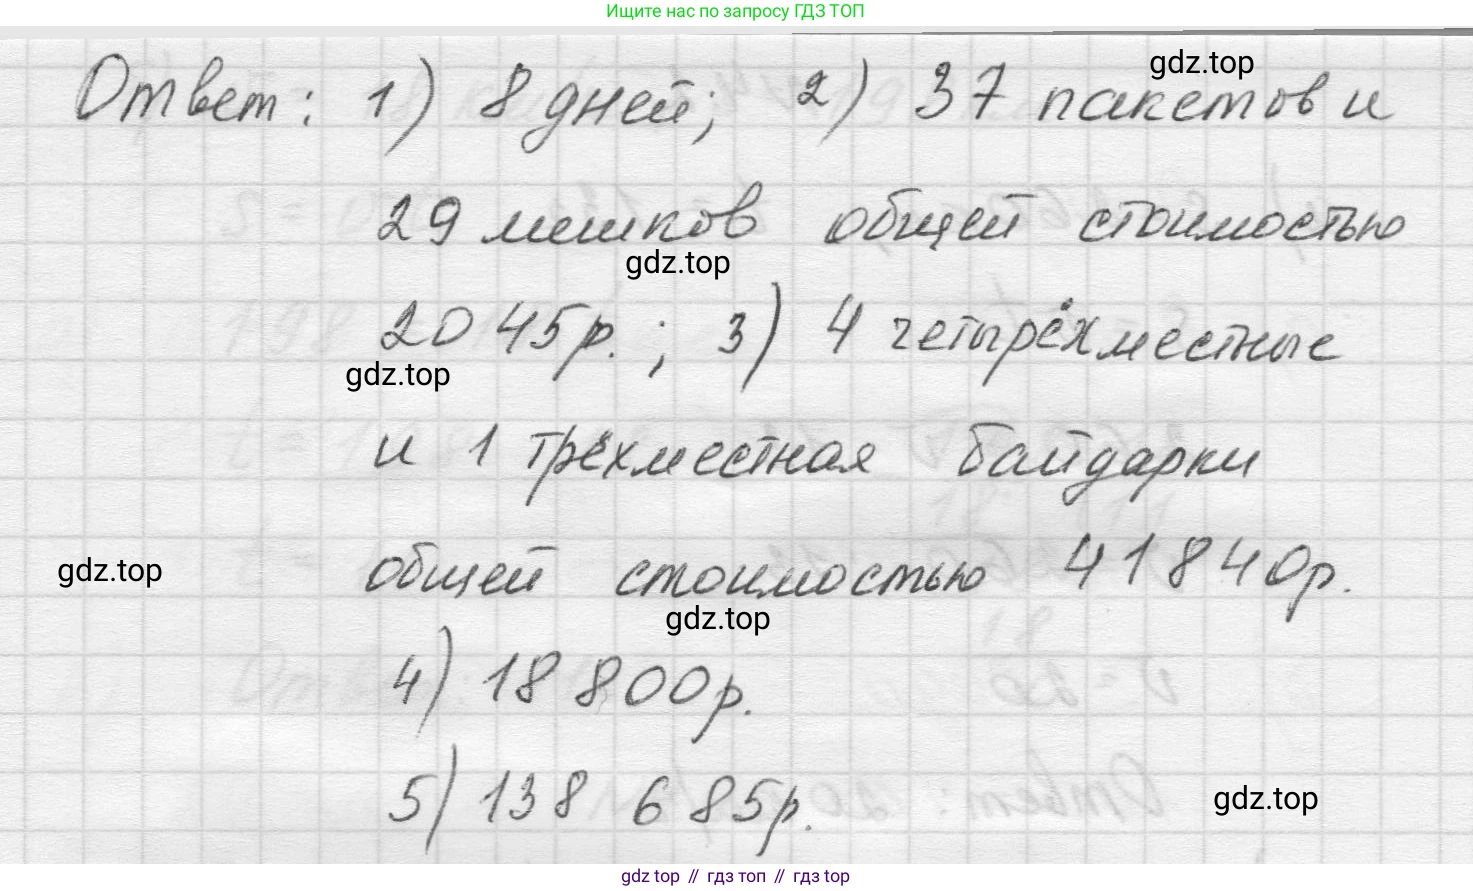 Ищите нас по запросу ГДЗ ТОП
gdz.top
Ответ: 1) 8 дней; 2) 37 пакетов и
29 мешков общей стоимостью
gdz.top
2045р.; 3) 4 четырёхместные
gdz.top
и 1 трёхместная байдарки
общей стоимостью 41840р.
gdz.top
gdz.top
4) 18 800р.
5) 138 685р.
gdz.top
gdz top // гдз топ // гдз top